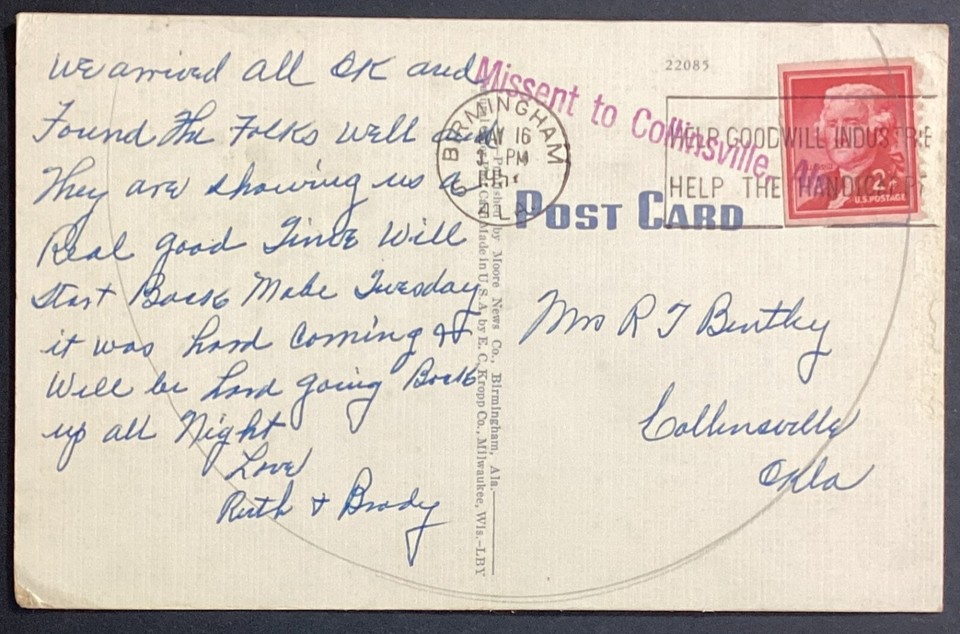 We arrived all OK and
Found the Folks well and
They are showing us a
Real good Time Will
start Back Mabe Tuesday
it was hard Coming &
Will be hard going Back
up all Night
Love
Ruth & Brady
Missent to Collinsville, Ala.
BIRMINGHAM
MAY 16
PM
ALA
22085
HELP GOODWILL INDUSTRIE
HELP THE HANDICAP
2¢
U.S. POSTAGE
POST CARD
Published by Moore News Co., Birmingham, Ala.
Card Made in U.S.A. by E. C. Kropp Co., Milwaukee, Wis.-LBY
Mrs R T Bentley
Collinsville
Okla